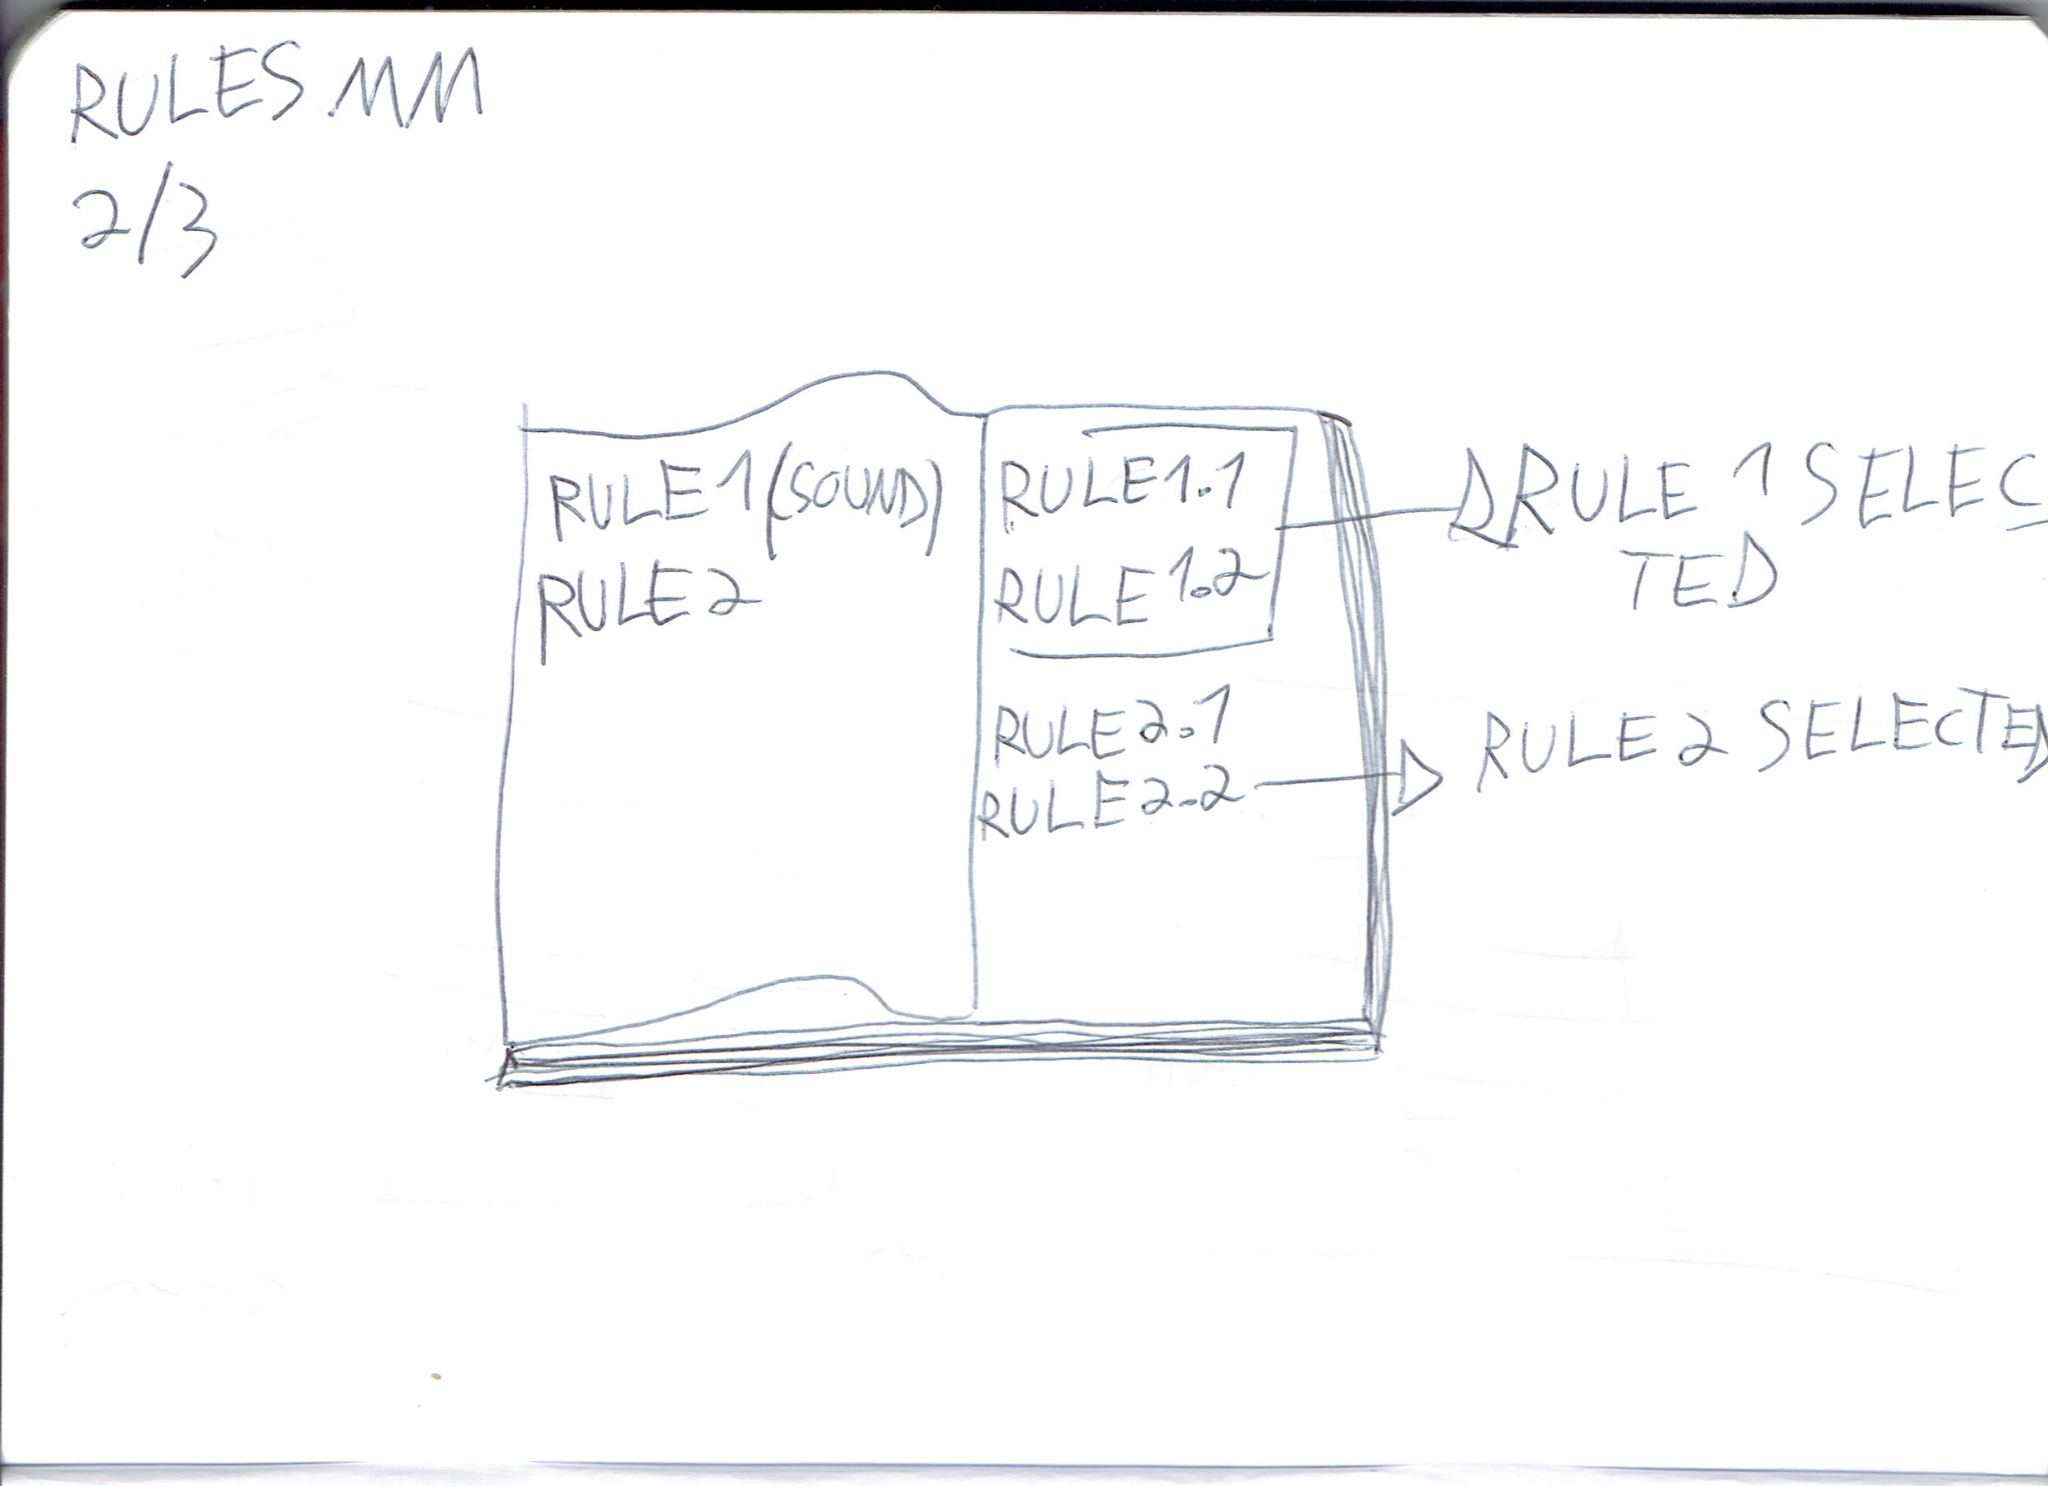 RULES.MM
2/3
RULE1(SOUND)
RULE2
RULE1.1
RULE1.2
RULE2.1
RULE2.2
RULE 1 SELEC
TED
RULE2 SELECTED